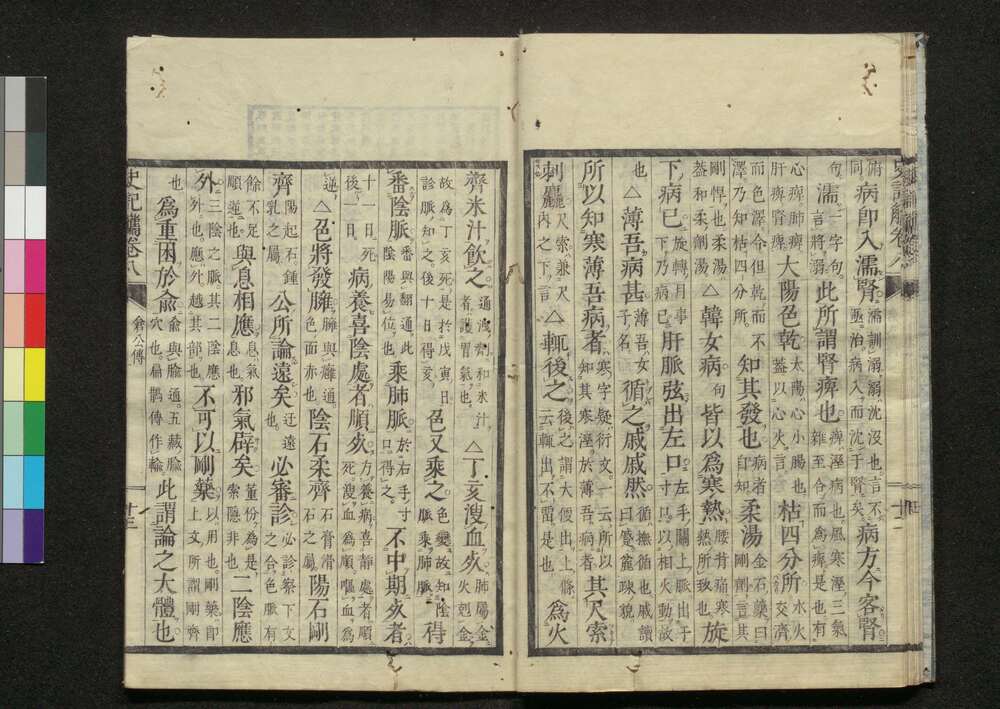 史記觿卷八
俯同 病即入濡腎 濡訓溺溺沈沒也言不亟治病入而沈于腎矣 病方今客腎
句 濡 一字句言將溺 此所謂腎痺也 痺溼也風寒溼三氣雜至合而爲痺是也有
心痺肺痺肝痺腎痺 大陽色乾 太陽心小腸也蓋以心火言 枯四分所 水火交濟
而色澤今但乾而不澤乃知枯四分所 知其發也 病者自知 柔湯 金石藥曰剛劑言其
剛悍也柔湯蓋和柔劑湯 △韓女病 句 皆以爲寒熱 腰背痛寒熱所致也 旋
下病已 旋轉月事下乃病已 肝脈弦出左口 左手關上脈出于寸口以相火動故
也 △薄吾病甚 薄吾女子名 循之戚戚然 循撫循也戚讀曰蹙蹙疎貌
所以知寒薄吾病者 寒字疑衍文一云所以知其寒溼於薄吾病者 其尺索
刺麤 尺索兼尺內之下言 △輒後之 後之謂大便出上絛云輒出不留是也 爲火
齊米汁飮之 通泄劑和米汁者護胃氣也 △丁亥溲血死 肺屬金火剋金
故爲丁亥死是於戊寅日診脈知之後十日得亥 色又乘之 色變故知陰脈乘肺脈 得
番陰脈 番與翻通此陰陽易位也 乘肺脈 於右手寸口得之 不中期死者
十一日死後一日 病養喜陰處者順死 方養病喜靜處者順死溲血爲順嘔血爲
逆 △色將發臃 臃與癰通色面赤也 陰石柔齊 石膏滑石之屬 陽石剛
齊 陽起石鍾乳之屬 公所論遠矣 迂遠也 必審診 必診察下文之合色脈有
餘不足順逆也 與息相應 息氣息也 邪氣辟矣 董份爲是索隱非也 二陰應
外 三陰之脈其二陰應外也應外越其部也 不可以剛藥 以用也剛藥卽上文所謂剛齊
也 爲重困於兪 兪與腧通五藏腧穴也扁鵲傳作輸 此謂論之大體也
史記觿卷八 倉公傳 十三